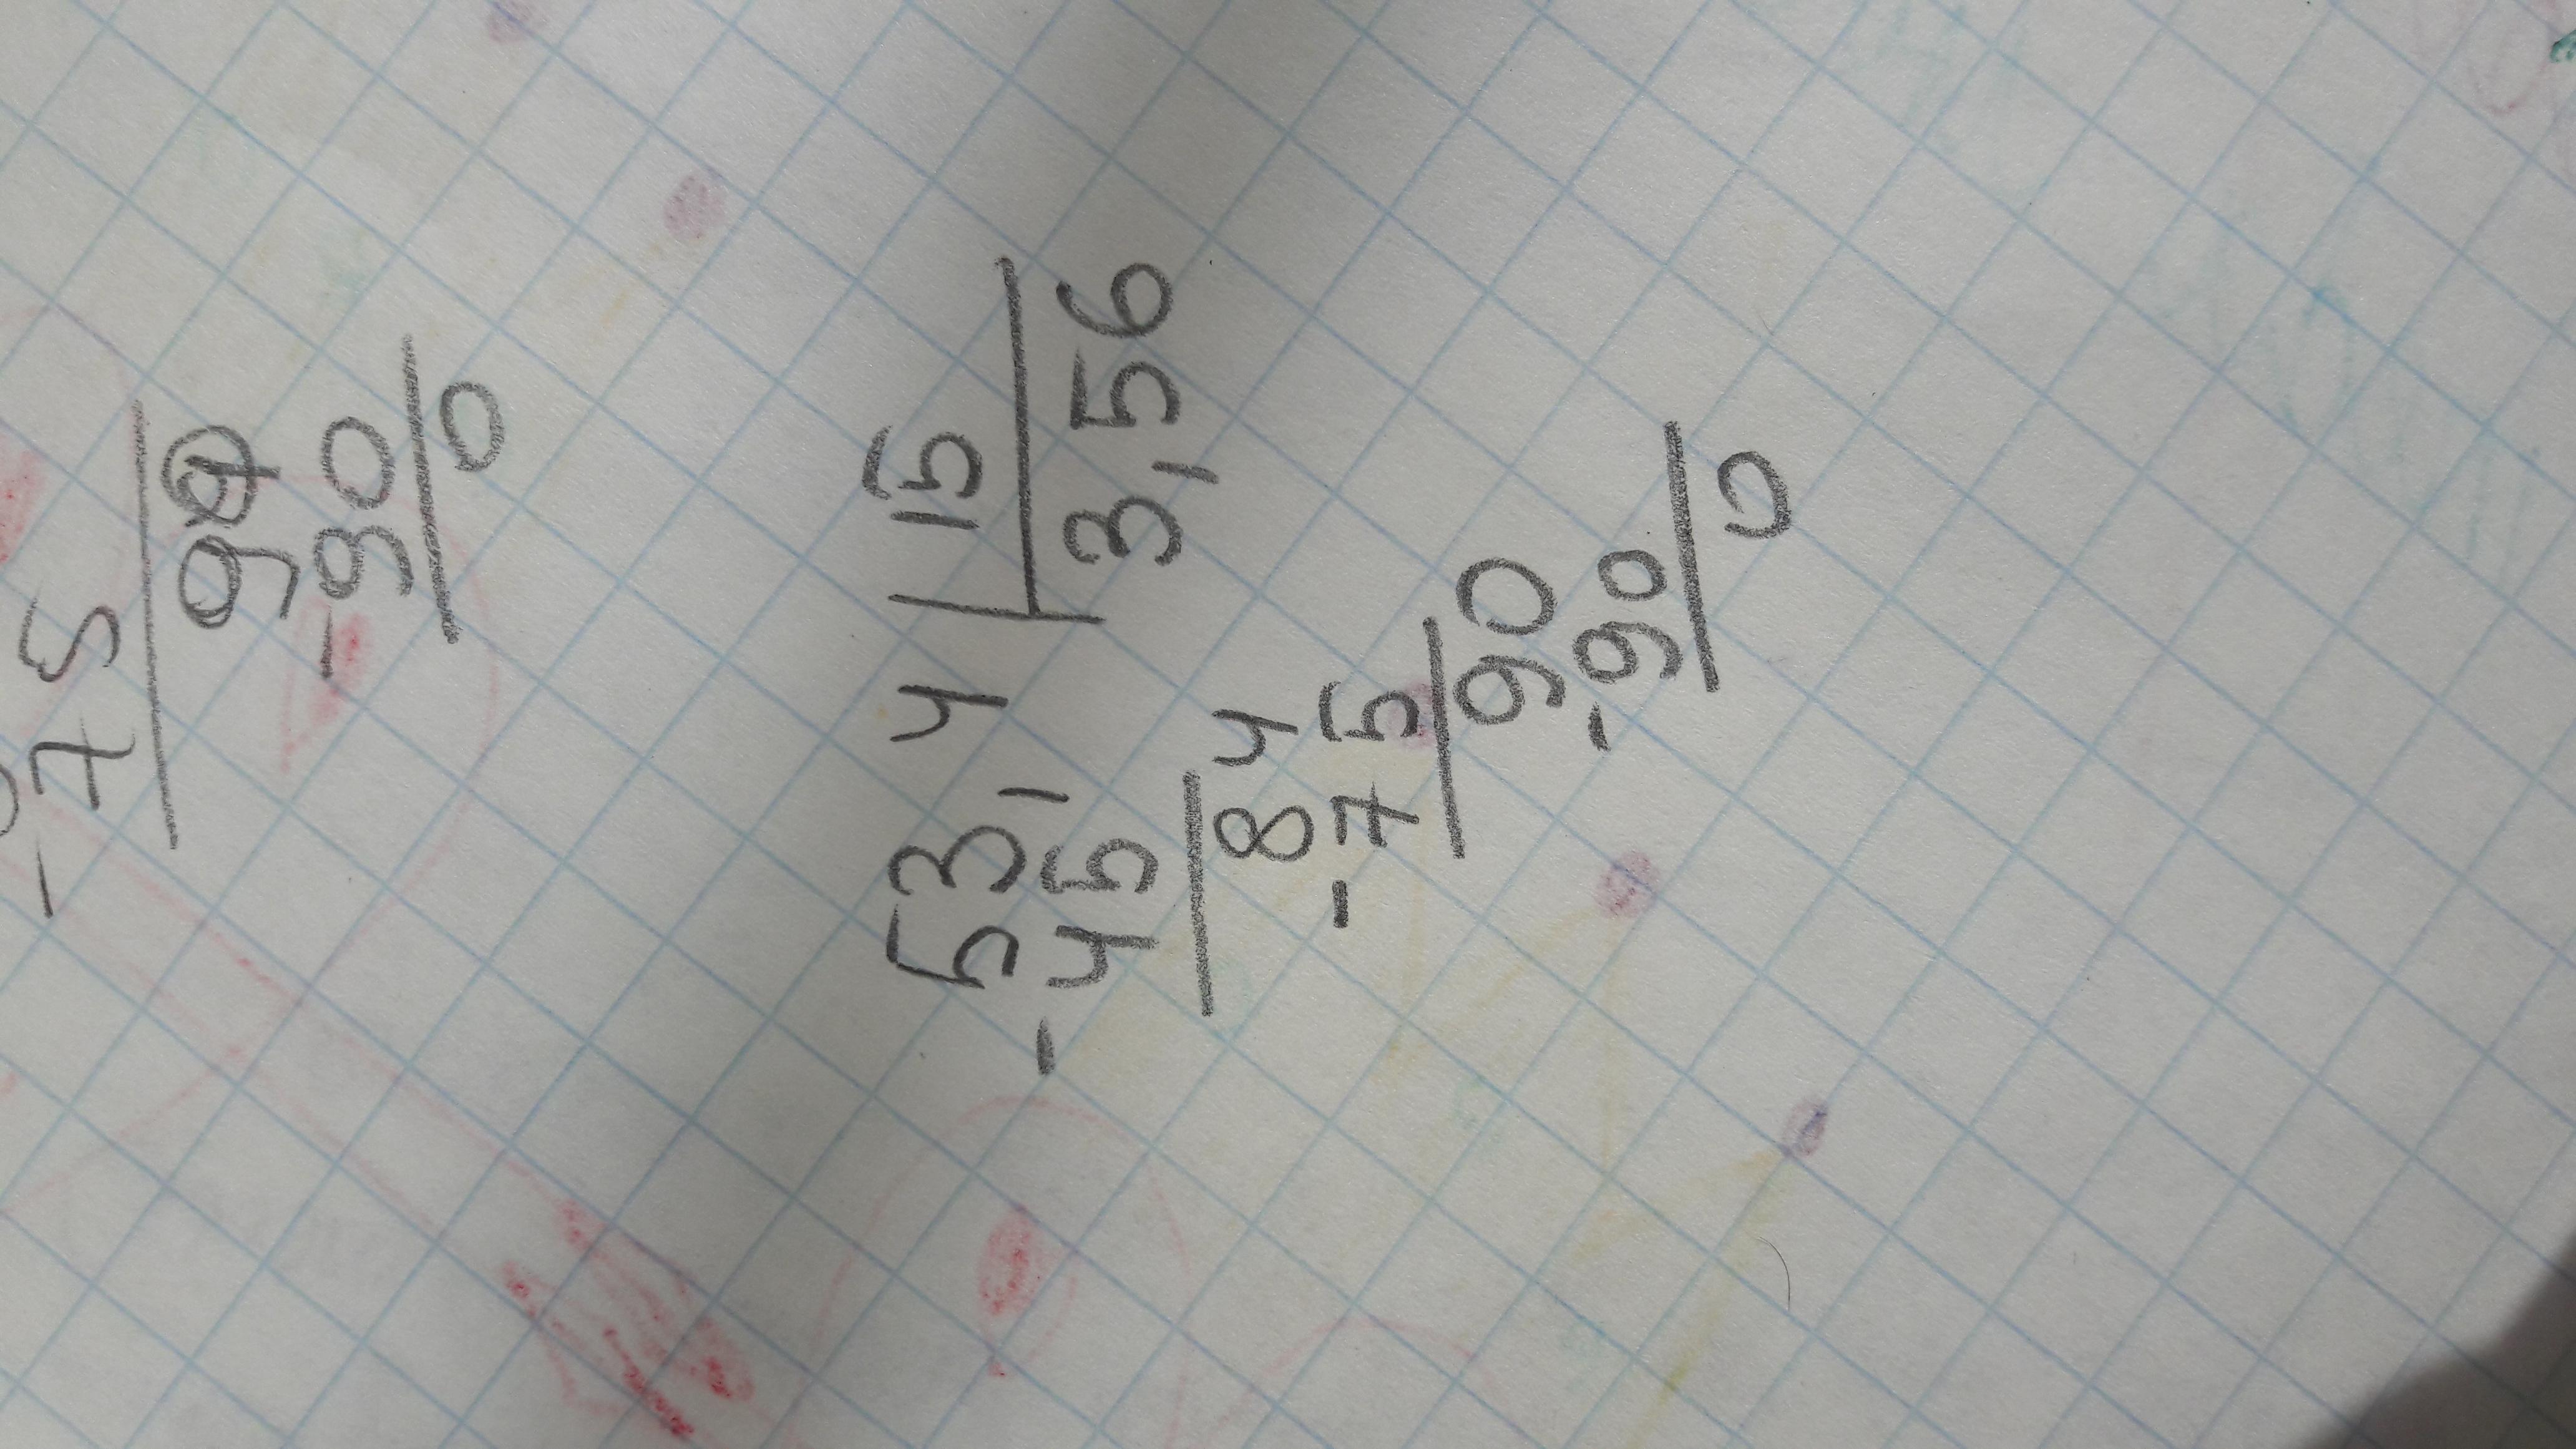 - 7 5
90
- 90
0
53,4 | 15
- 45 3,56
84
- 75
90
- 90
0